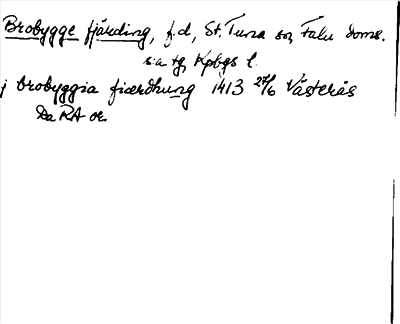 Brobygge fjärding, f.d., St. Tuna sn, Falu doms.
s:a tg, Kpbgs l.
j brobyggia fiærdhung 1413 27/6 Västerås
Da RA or.